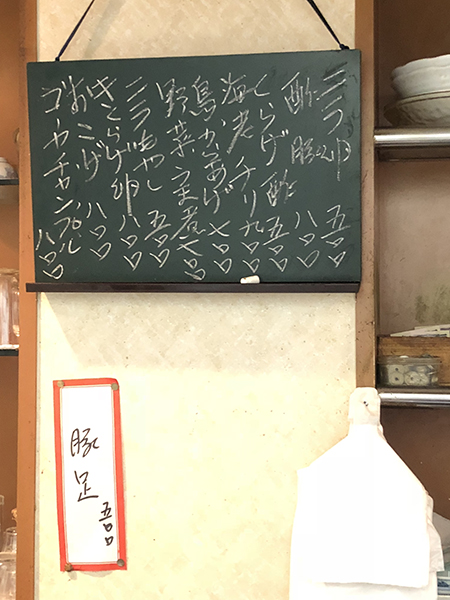 五〇〇
酢豚 八〇〇
くらげ酢 五〇〇
海老チリ 九〇〇
鳥からあげ 七〇〇
野菜うま煮 七〇〇
もやし 五〇〇
きくらげ卵 八〇〇
おこげ 八〇〇
ゴーヤチャンプル 八〇〇
豚足 五〇〇